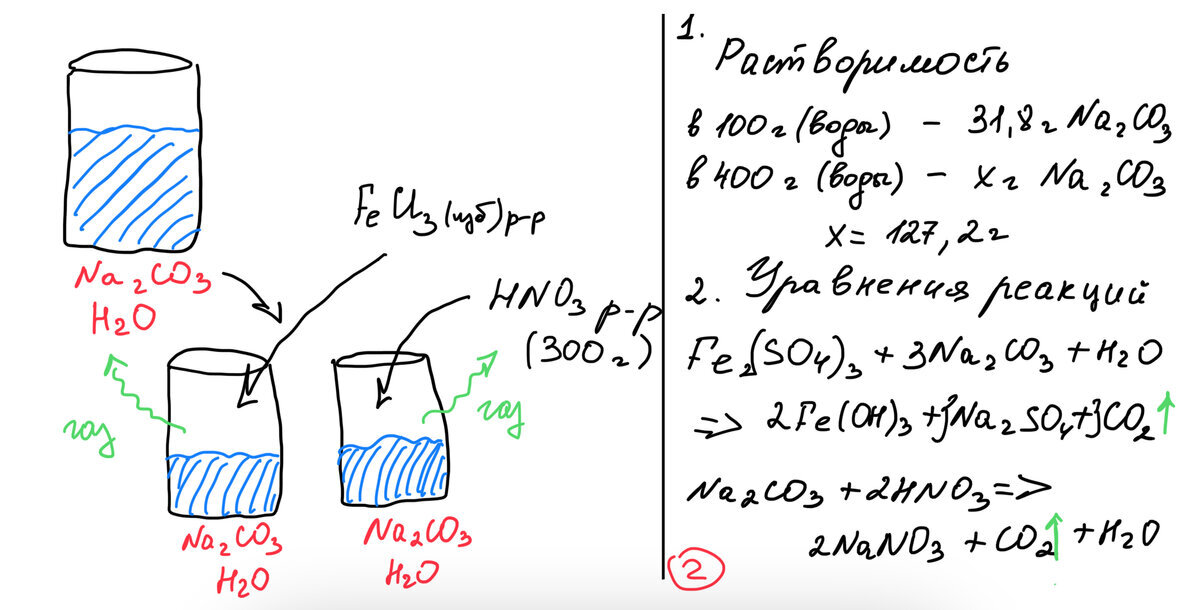 Na₂CO₃
H₂O
FeCl₃(изб)р-р
HNO₃ р-р
(300 г)
газ
газ
Na₂CO₃
H₂O
Na₂CO₃
H₂O
1.
Растворимость
в 100 г (воды) – 31,8 г Na₂CO₃
в 400 г (воды) – x г Na₂CO₃
x = 127,2 г
2. Уравнения реакций
Fe₂(SO₄)₃ + 3Na₂CO₃ + H₂O
=> 2Fe(OH)₃ + 3Na₂SO₄ + 3CO₂↑
Na₂CO₃ + 2HNO₃ =>
2NaNO₃ + CO₂↑ + H₂O
2